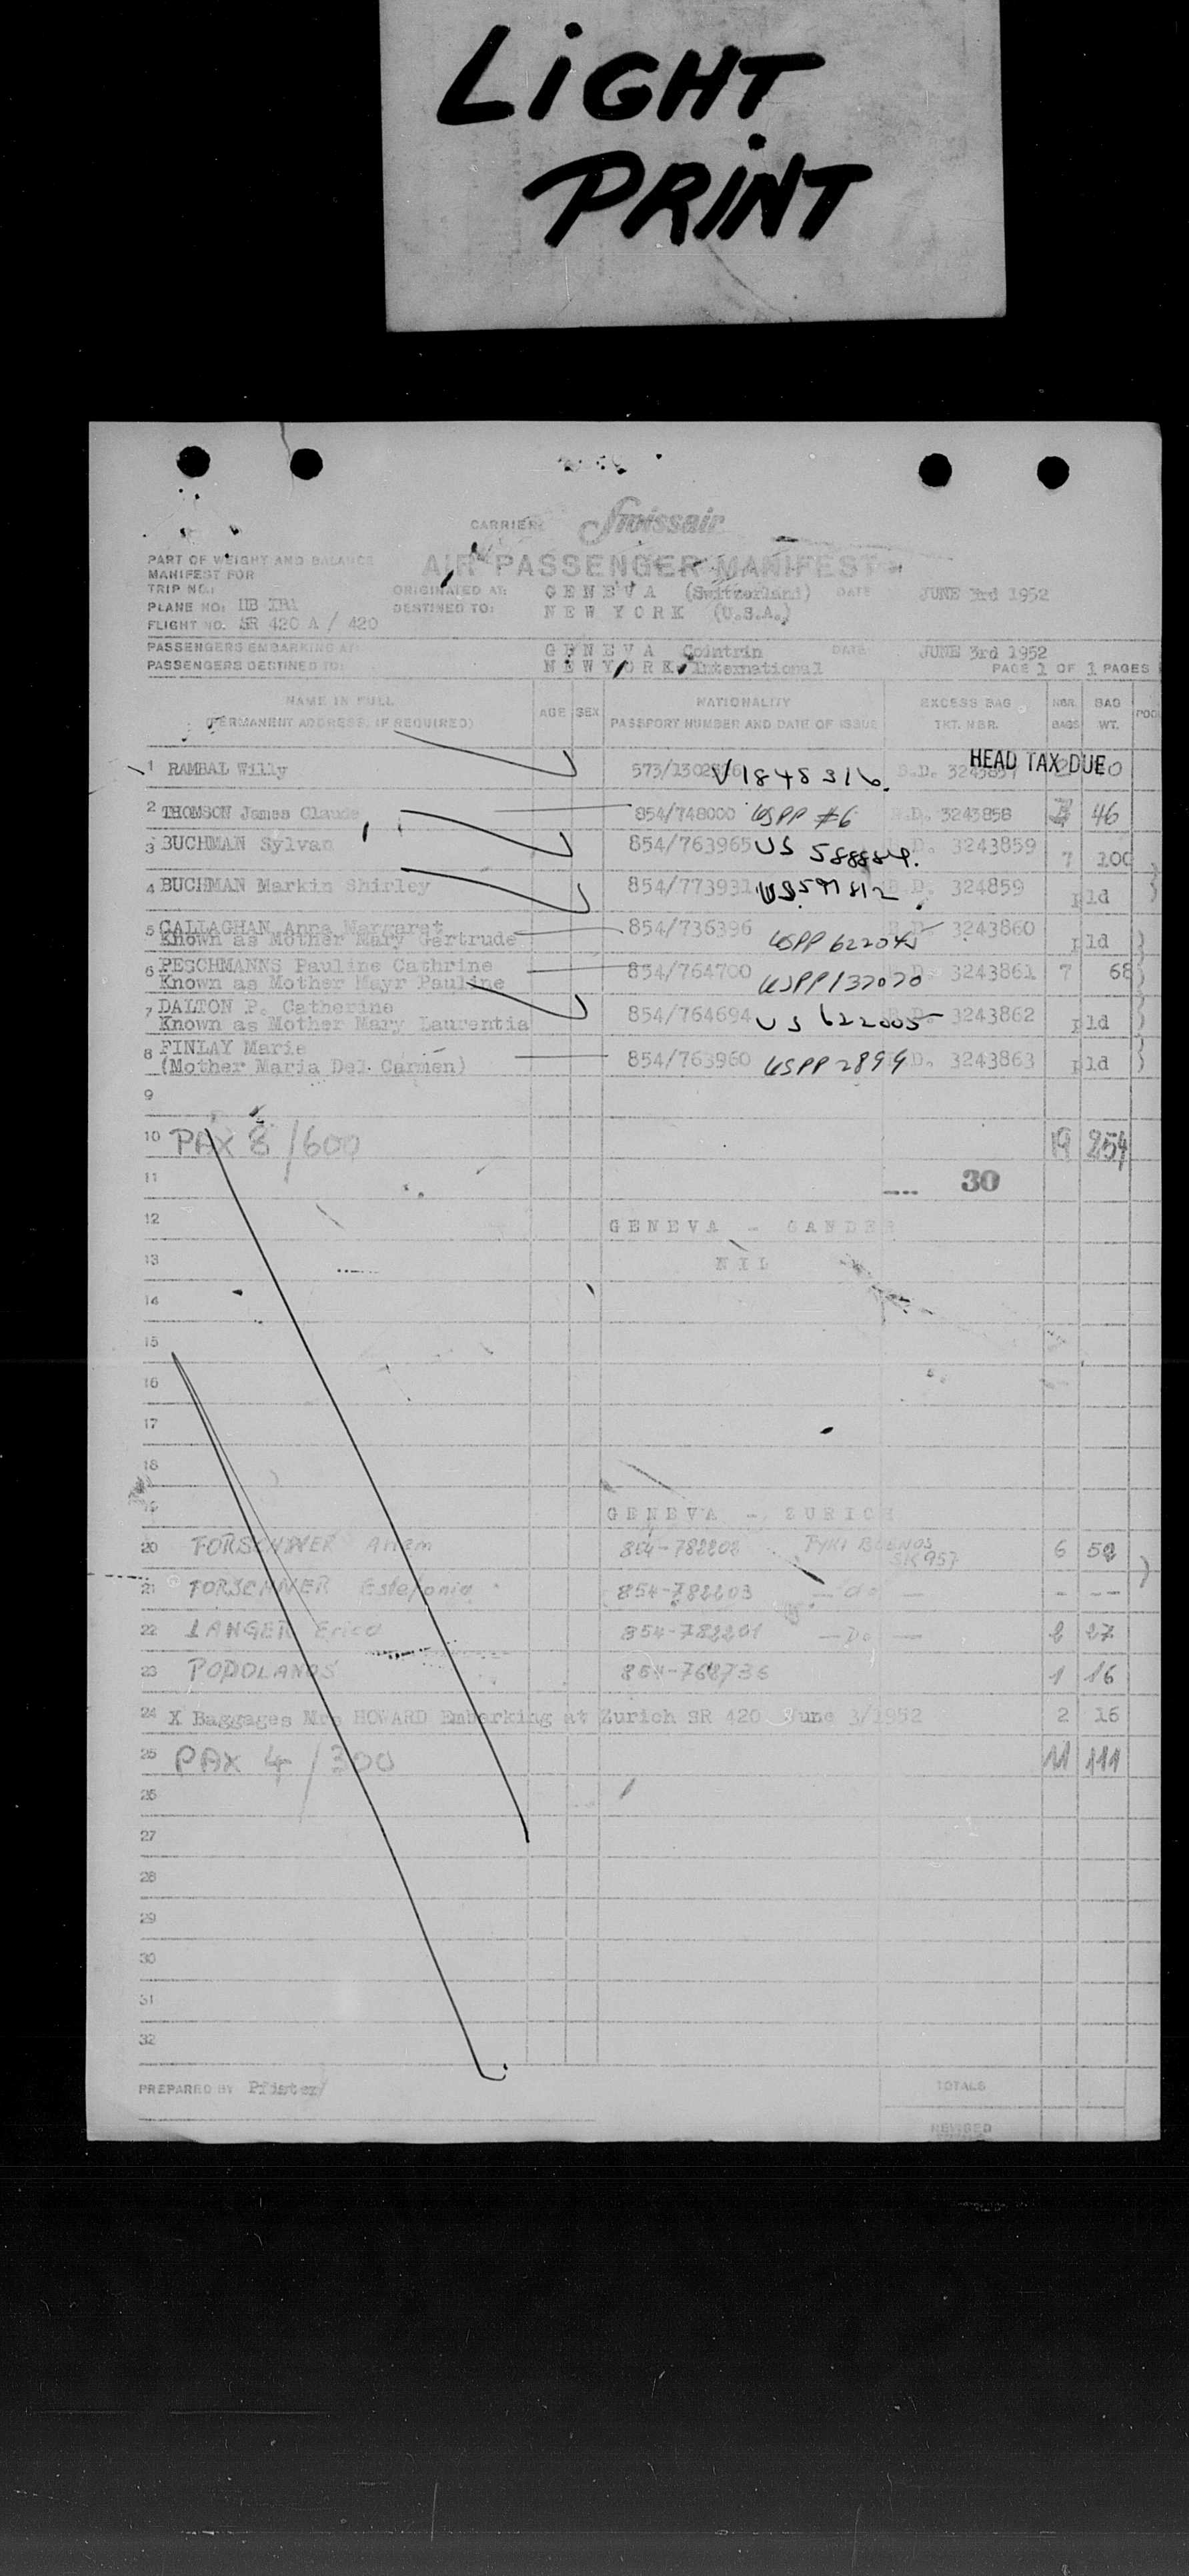 LIGHT
PRINT
CARRIER: Swissair
PART OF WEIGHT AND BALANCE
MANIFEST FOR
AIR PASSENGER MANIFEST
TRIP NO:
ORIGINATED AT: GENEVA (Switzerland) DATE JUNE 3rd 1952
PLANE NO: HB
DESTINED TO: NEW YORK (U.S.A.)
FLIGHT NO. SR 420 A / 420
PASSENGERS EMBARKING AT: GENEVA Cointrin DATE JUNE 3rd 1952
PASSENGERS DESTINED TO: NEW YORK International PAGE 1 OF 1 PAGES
NAME IN FULL
(PERMANENT ADDRESS, IF REQUIRED) AGE SEX NATIONALITY
PASSPORT NUMBER AND DATE OF ISSUE EXCESS BAG
TKT. NBR. NBR.
BAGS BAG
WT.
HEAD TAX DUE
1 RAMBAL Willy V1848316.
2 THOMSON James Claude 854/748000 USPP #6 3243858 46
3 BUCHMAN Sylvan 854/763965 US 588884. 3243859 7 100
4 BUCHMAN Markin Shirley 854/773931 US 591812 324859 pld
5 CALLAGHAN Anna Margaret 854/736396 3243860 pld
Known as Mother Mary Gertrude
6 PESCHMANNS Pauline Cathrine 854/764700 USPP137070 3243861 7 68
Known as Mother Mayr Pauline
7 DALTON P. Catherine 854/764694 US 622005 3243862 pld
Known as Mother Mary Laurentia
8 FINLAY Marie 854/763960 USPP 2899 3243863 pld
(Mother Maria Del Carmen)
9
10 PAX 8/600 19 254
11 30
12 GENEVA - GANDER
13 NIL
14
15
16
17
18
19 GENEVA - ZURICH
20 6
21 Estefania 854-782203 - do - - --
22 LANGER Erica 854-782201 - Do - 2 27
23 PODOLANOS 854-768736 1 16
24 X Baggages Mrs HOWARD Embarking at Zurich SR 420 June 3/1952 2 16
25 PAX 4/300 11 111
26
27
28
29
30
31
32
PREPARED BY Pfister TOTALS
REVISED